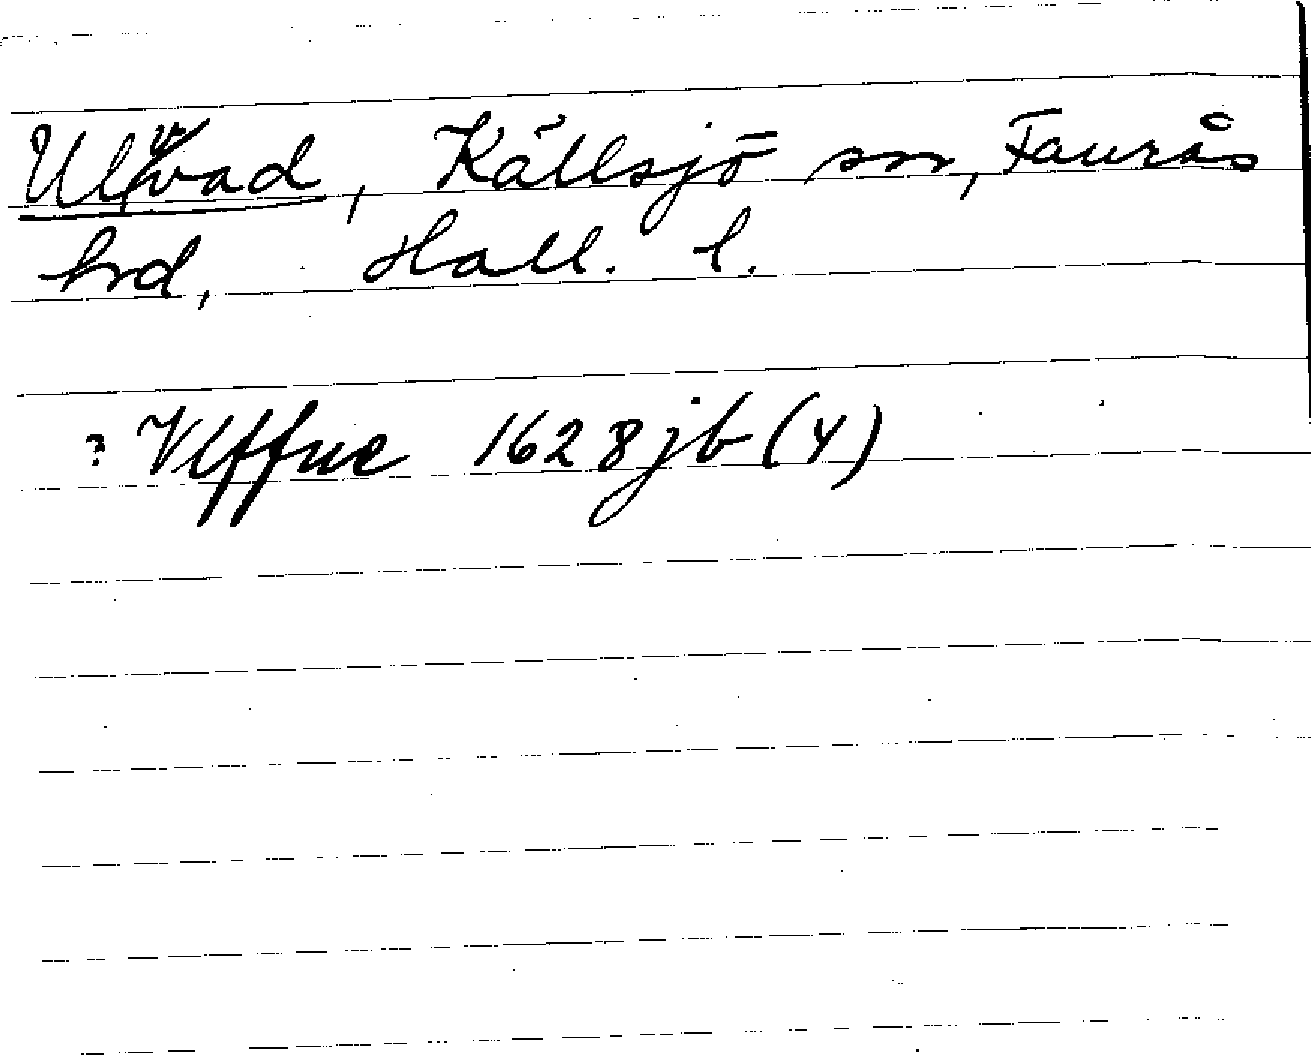 Ulvvad, Källsjö sn, Faurås
hrd, Hall. l.
? Vlffue 1628 jb (4)